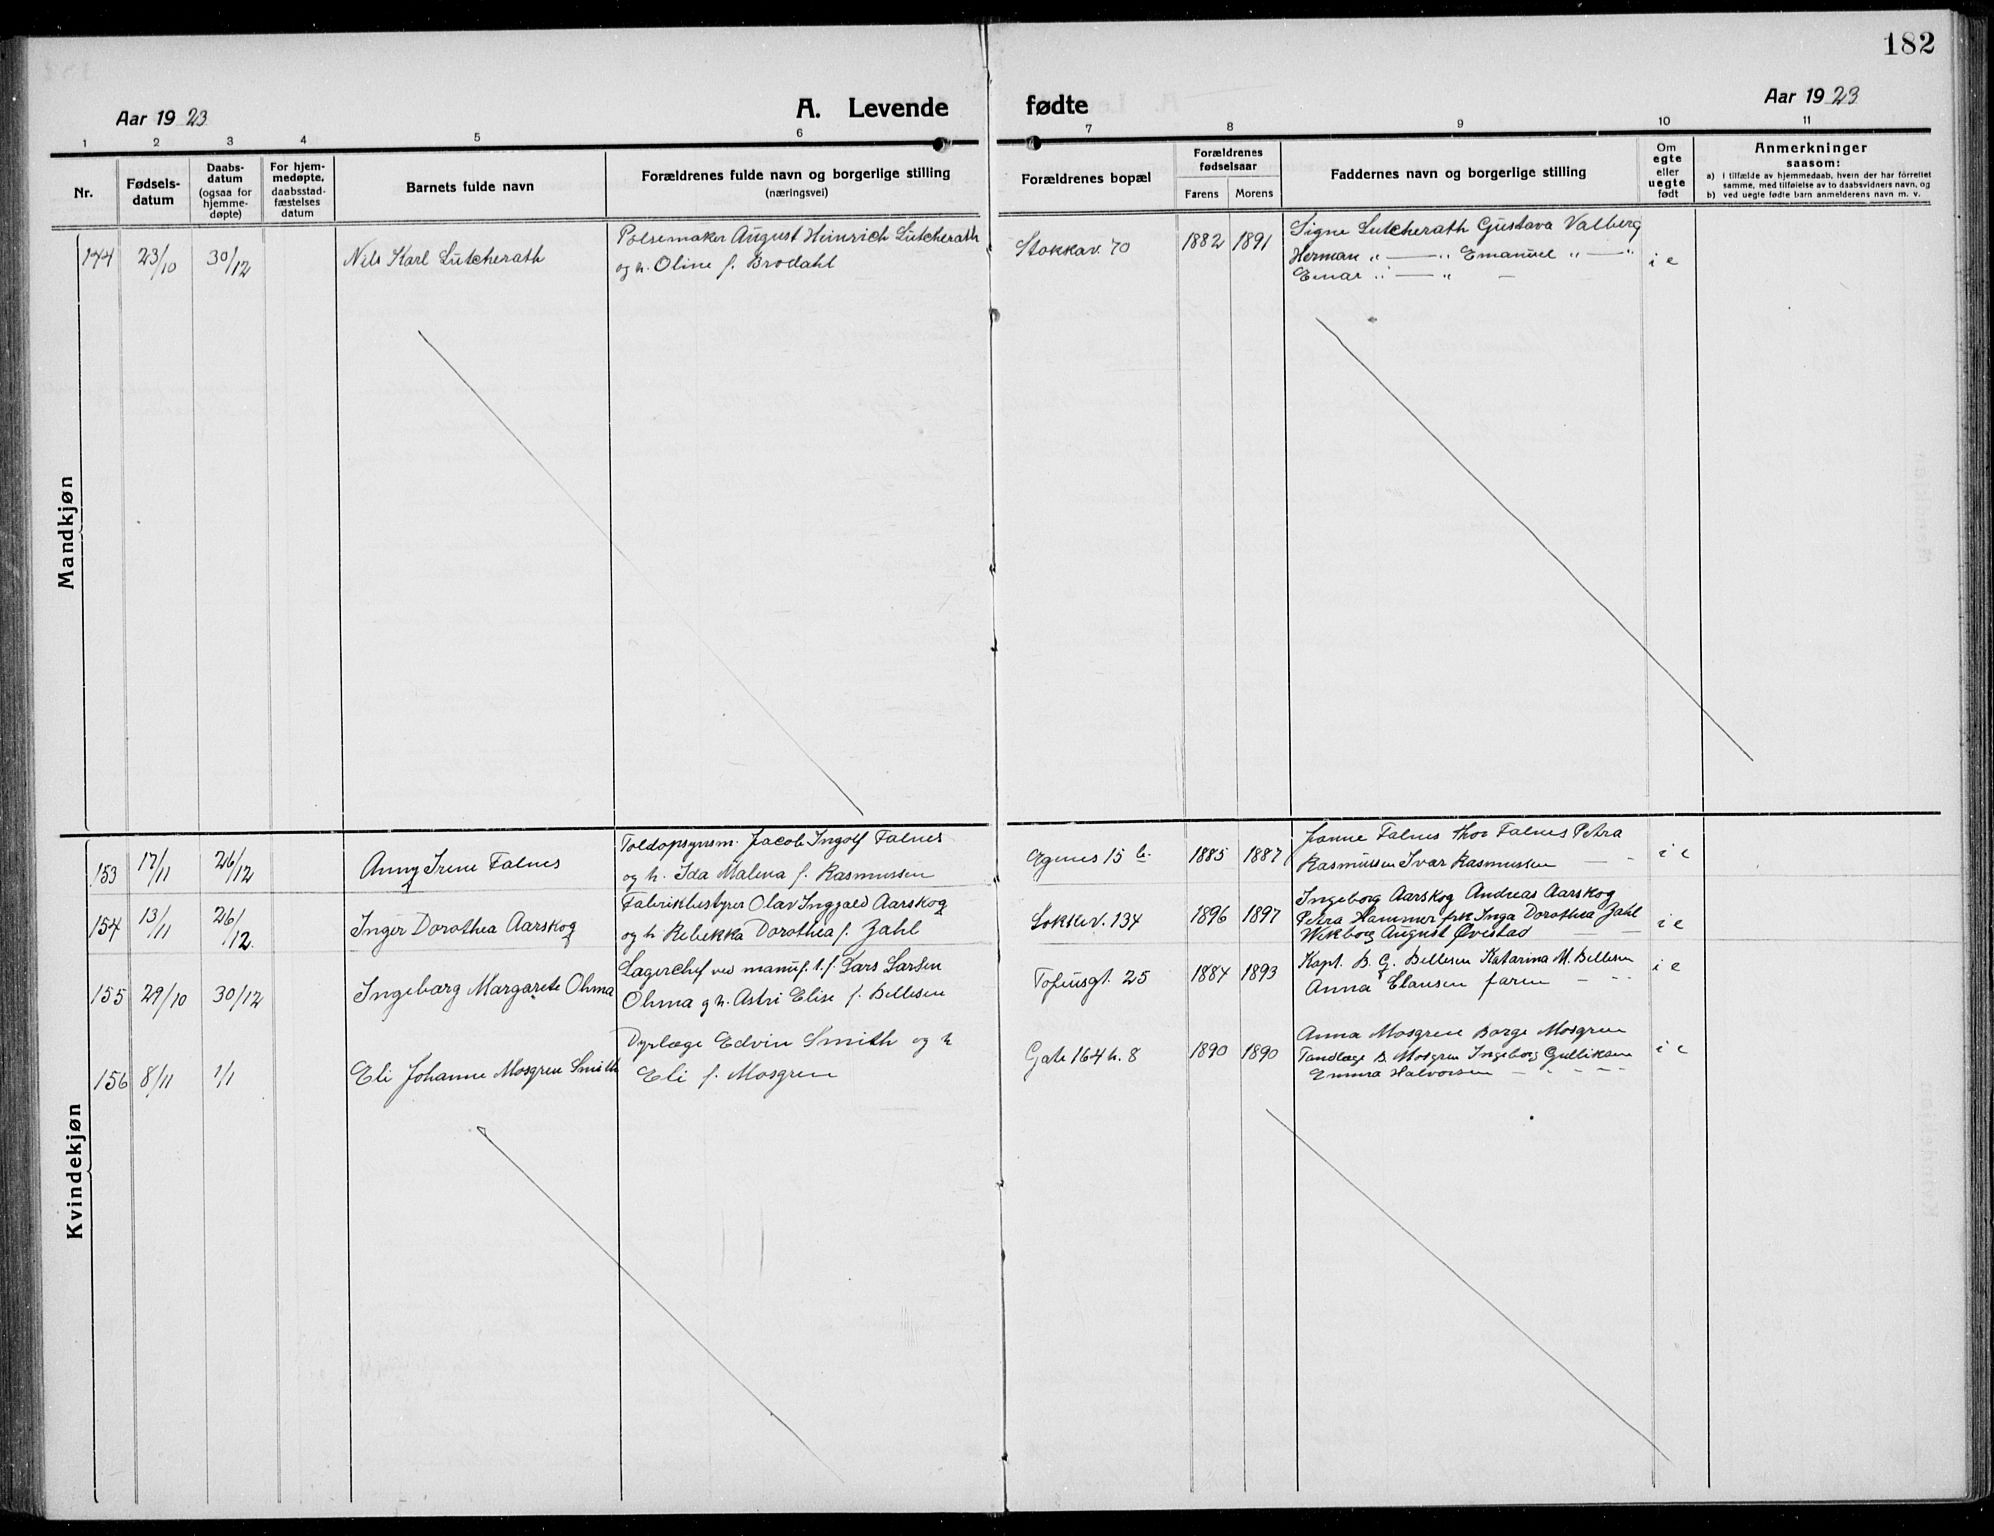 182
Aar 1923
A. Levende
fødte
Aar 1923
1 2 3 4 5 6 7 8 9 10 11
Nr.
Fødsels-
datum
Daabs-
datum
(ogsaa for
hjemme-
døpte)
For hjem-
medøpte,
daabsstad-
fæstelses
datum
Barnets fulde navn
Forældrenes fulde navn og borgerlige stilling
(næringsvei)
Forældrenes bopæl
Forældrenes
fødselsaar
Farens Morens
Faddernes navn og borgerlige stilling
Om
egte
eller
uegte
født
Anmerkninger
saasom:
a) i tilfælde av hjemmedaab, hvem der har forrettet
samme, med tilføielse av to daabsvidners navn, og
b) ved uegte fødte barn anmelderens navn m. v.
Mandkjøn
144 23/10 30/12 Nils Karl Lütcherath
Pølsemaker August Heinrich Lütcherath
og h. Oline f. Brodahl
Stokkav. 70 1882 1891
Signe Lutcherath Gustava Valberg
Herman " — " Emanuel " — "
Einar " — " —
i e
Kvindekjøn
153 17/11 26/12 Anny Irene Falnes
Toldopsynsm. Jacob Ingolf Falnes
og h. Ida Malena f. Rasmussen
Egenes 15 b. 1885 1887
Janne Falnes Thor Falnes Petra
Rasmussen Ivar Rasmussen — "
i e
154 13/11 26/12. Inger Dorothea Aarskog
Fabrikbestyrer Olav Inggald Aarskog
og h Rebekka Dorothea f. Zahl
Lokkev. 134 1896 1897
Ingeborg Aarskog Andreas Aarskog
Petra Hammer frk Inga Dorothea Zahl
Wikborg August Øvestad — —
i e
155 29/10 30/12 Ingeborg Margarete Ohma
Lagerchef ved manuf. t.f. Lars Larsen
Ohma g h. Astri Elise f. Bellesen
Tofeusgt. 25 1884 1893
Kapt. B. G. Bellesen Katarina M. Bellesen
Anna Clausen faren — " "
i e
156 8/11 1/1 Eli Johanne Mosgren Smith
Dyrlæge Edvin Smith og h
Eli f. Mosgren
Gate 164 h. 8 1890 1890
Anna Mosgren Borge Mosgren
Tandlæge B. Mosgren Ingeborg
Emma Halvorsen — " — " —
i e